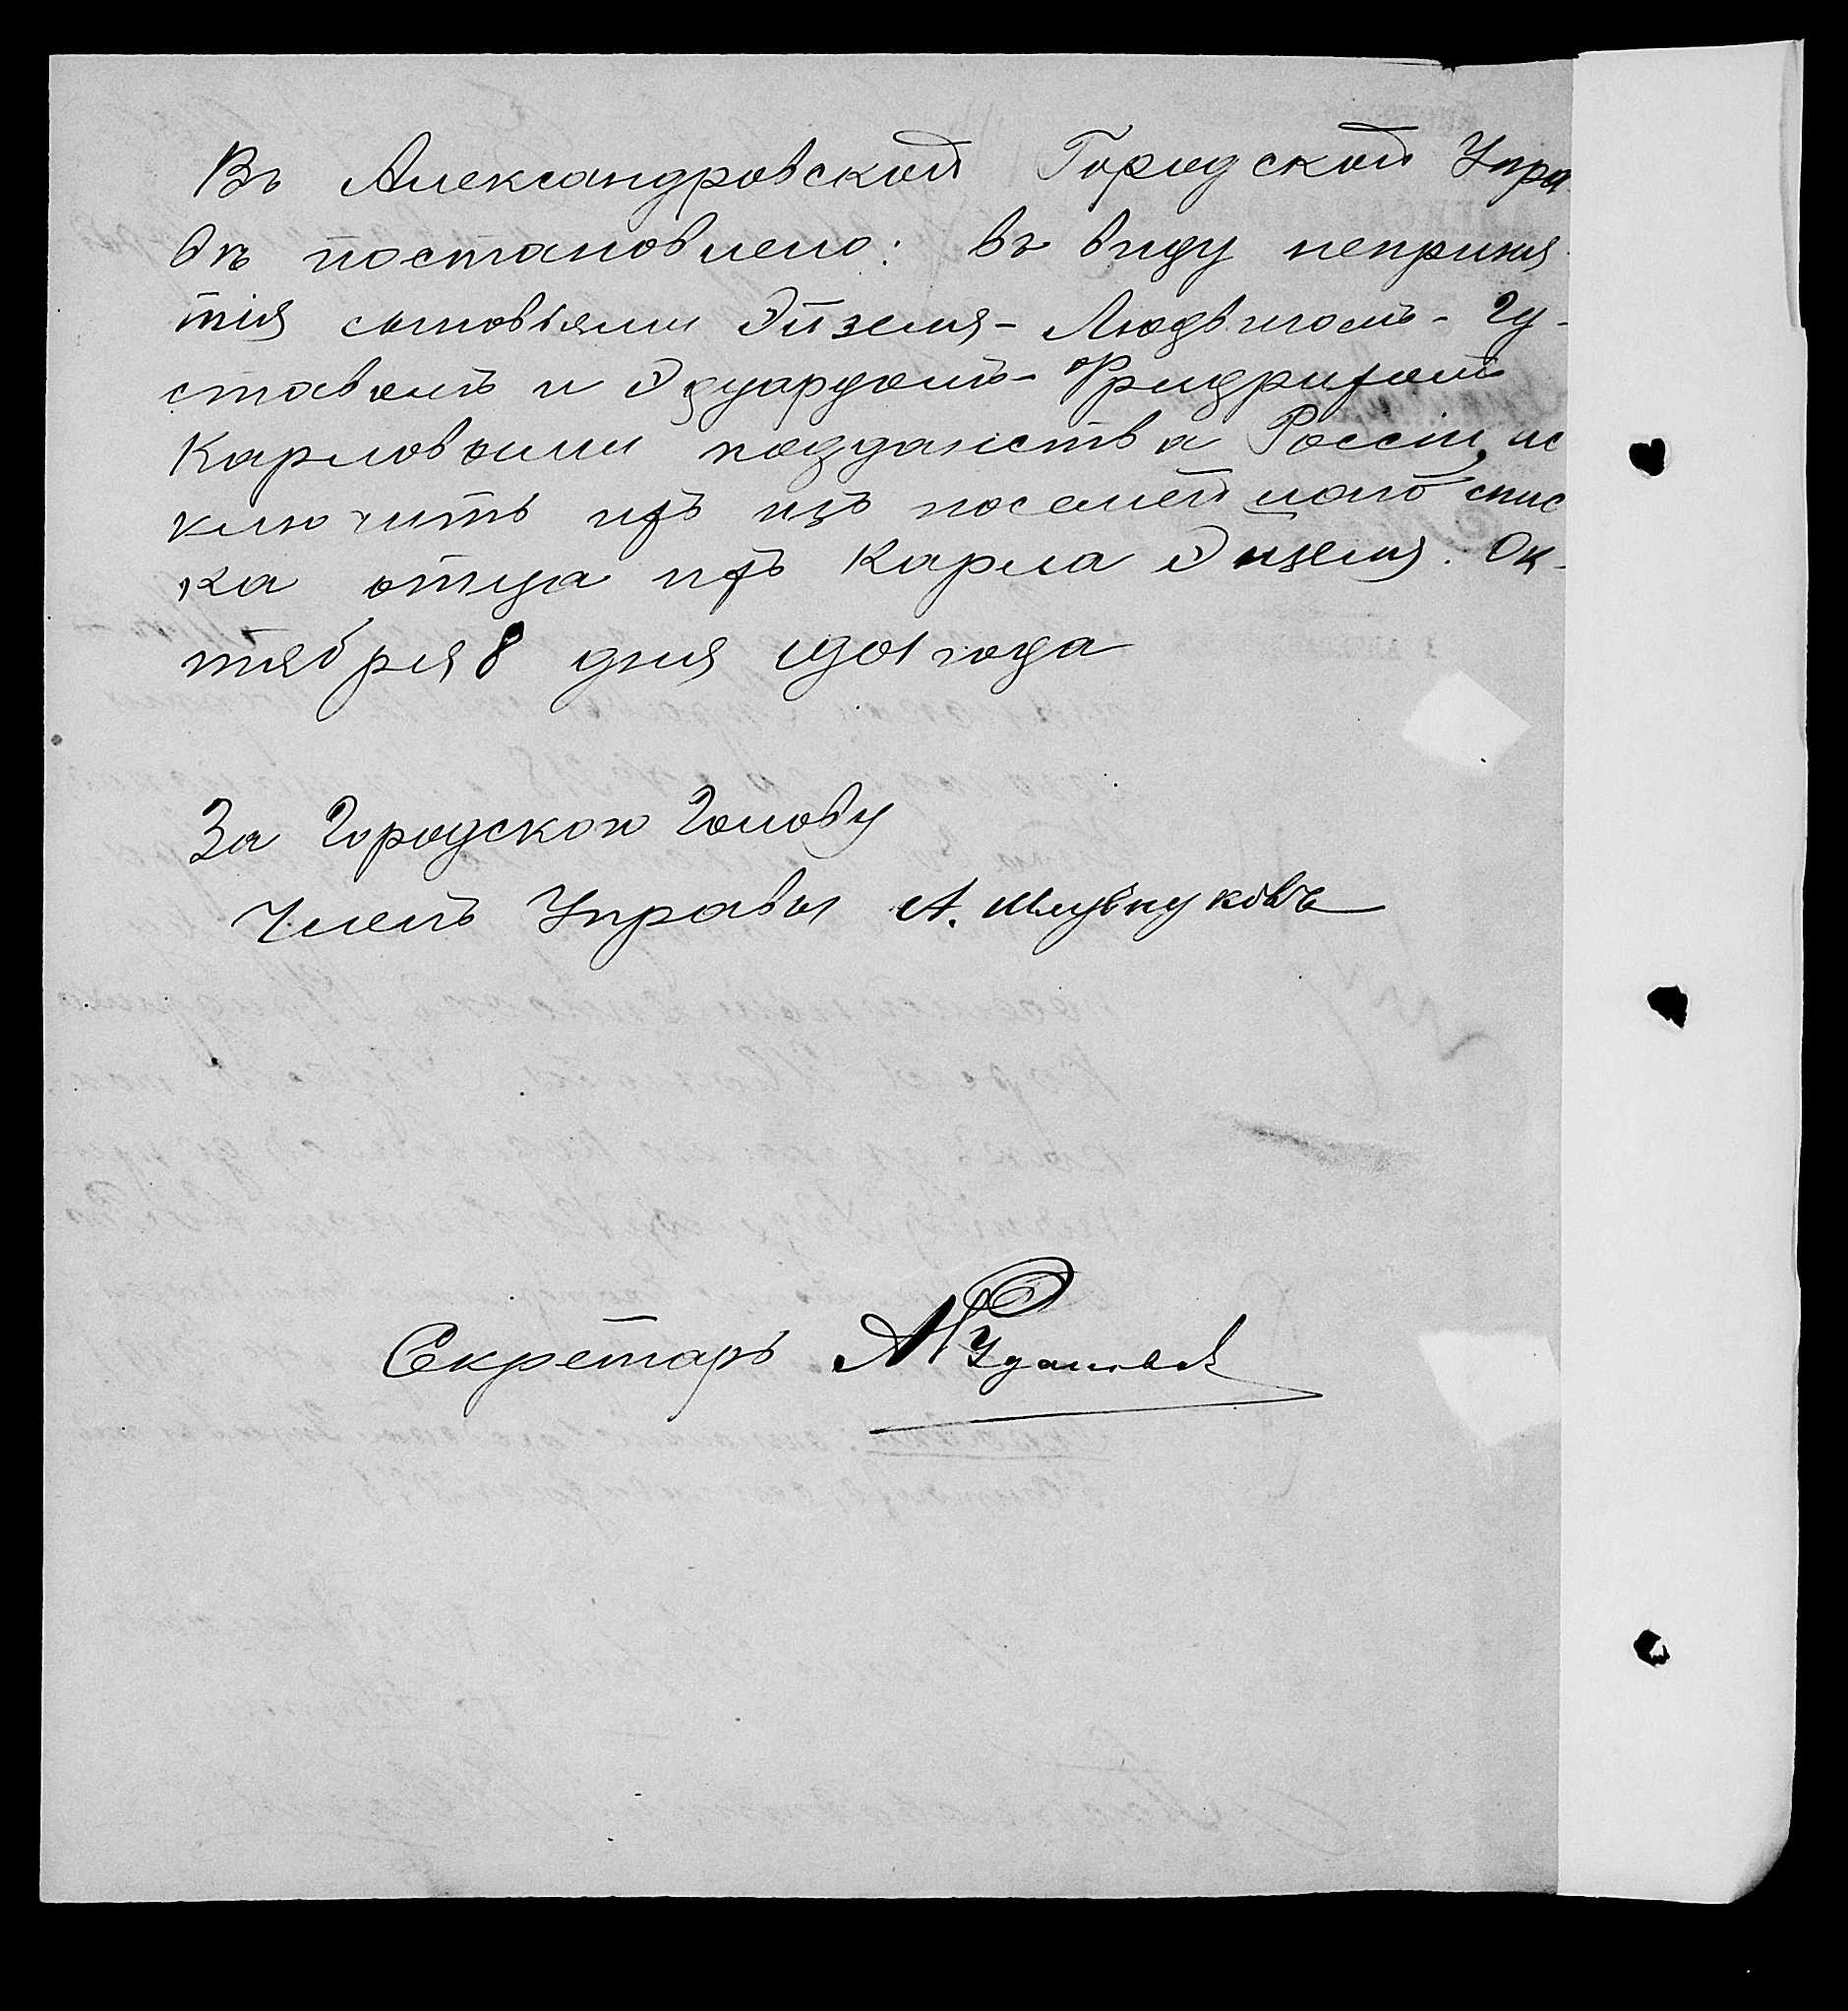 Въ Александровской Городской Упра
вѣ постановлено: въ виду неприня-
тія сыновьями Эйзеля - Людвигомъ - Гу-
ставомъ и Эдуардомъ - Фридрихомъ
Карловыми подданства Россіи, ис
ключить ихъ изъ посемейнаго спис
ка отца ихъ Карла Эйзеля. Ок-
тября 8 дня 1901 года
За Городского Голову
Членъ Управы А.
Секретарь